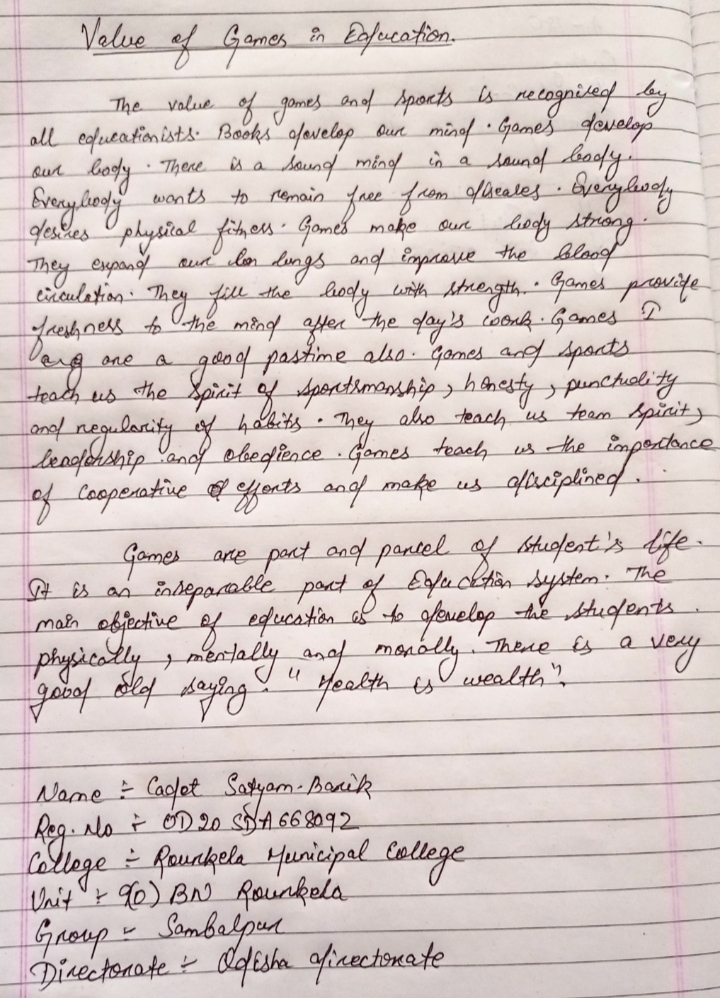 Value of Games in Education.
The value of games and sports is recognised by
all educationists. Books develop our mind. Games develop
our body. There is a sound mind in a sound body.
Everybody wants to remain free from diseales. Everybody
desires physical fitness. Games make our body strong.
They expand our lungs and improve the blood
circulation. They fill the body with strength. Games provide
freshness to the mind after the day's work. Games
are a good pastime also. Games and sports
teach us the spirit of sportsmanship, honesty, punctuality
and regularity of habits. They also teach us team spirit,
leadership and obedience. Games teach us the importance
of cooperative efforts and make us disciplined.
Games are part and parcel of student's life.
It is an inseparable part of Education system. The
main objective of education is to develop the students
physically, mentally and morally. There is a very
good old saying. "Health is wealth".
Name :- Cadet Satyam Barik
Reg. No :- OD20SDA668092
College :- Rourkela Municipal College
Unit :- 9(O) BN Rourkela
Group :- Sambalpur
Directorate :- Odisha directorate